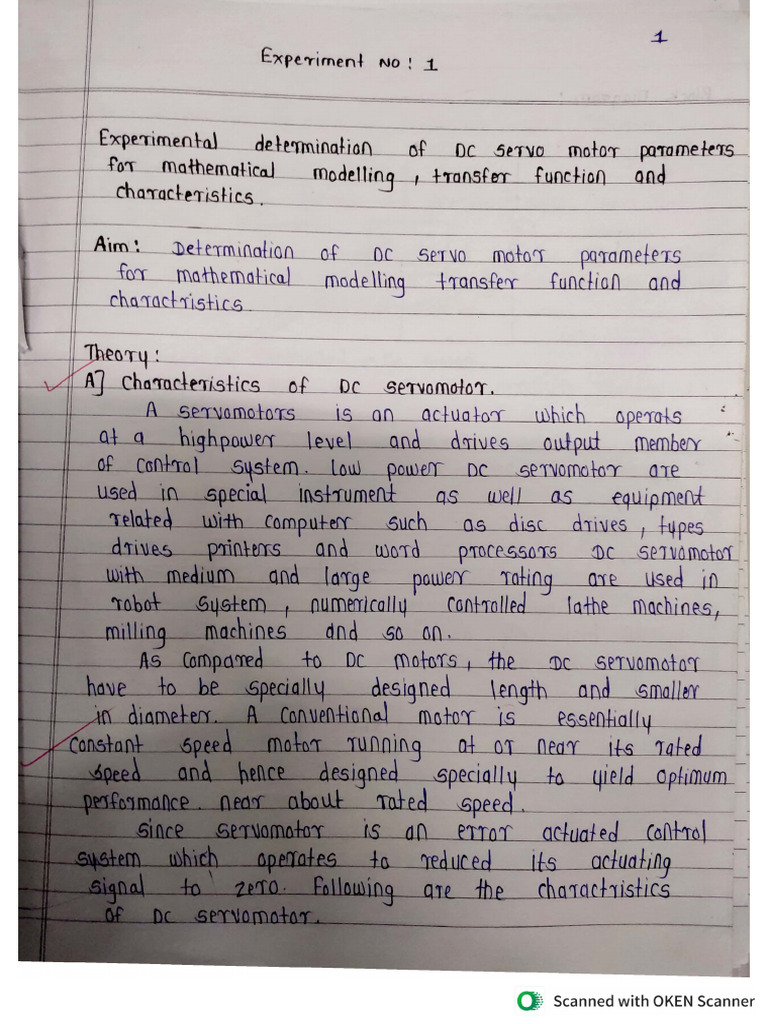 1
Experiment No: 1
Experimental determination of DC servo motor parameters
for mathematical modelling, transfer function and
characteristics.
Aim: Determination of DC servo motor parameters
for mathematical modelling transfer function and
charactristics.
Theory:
A] Characteristics of DC servomotor.
A servomotors is an actuator which operats
at a highpower level and drives output member
of control system. low power DC servomotor are
used in special instrument as well as equipment
related with computer such as disc drives, types
drives printers and word processors DC servomotor
with medium and large power rating are used in
robot system, numerically controlled lathe machines,
milling machines and so on.
As compared to DC motors, the DC servomotor
have to be specially designed length and smaller
in diameter. A conventional motor is essentially
constant speed motor running at or near its rated
speed and hence designed specially to yield optimum
performance near about rated speed.
since servomotor is an error actuated control
system which operates to reduced its actuating
signal to zero. Following are the charactristics
of DC servomotor.
Scanned with OKEN Scanner